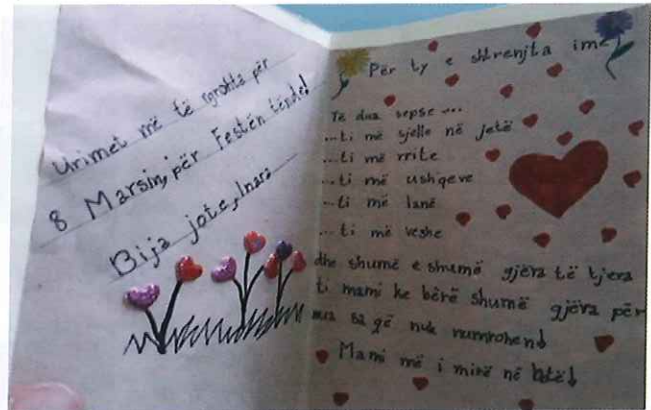 Urimet më të ngrohta për
8 Marsin, për Festën tënde!
Bija jote, Inara
Për ty e shtrenjta ime!
Të dua sepse ...
...ti më sjelle në jetë
...ti më rrite
...ti më ushqeve
...ti më lanë
...ti më veshe
dhe shumë e shumë gjëra të tjera
ti mami ke bërë shumë gjëra për
mua sa që nuk numrohen!
Mami më i mirë në botë!